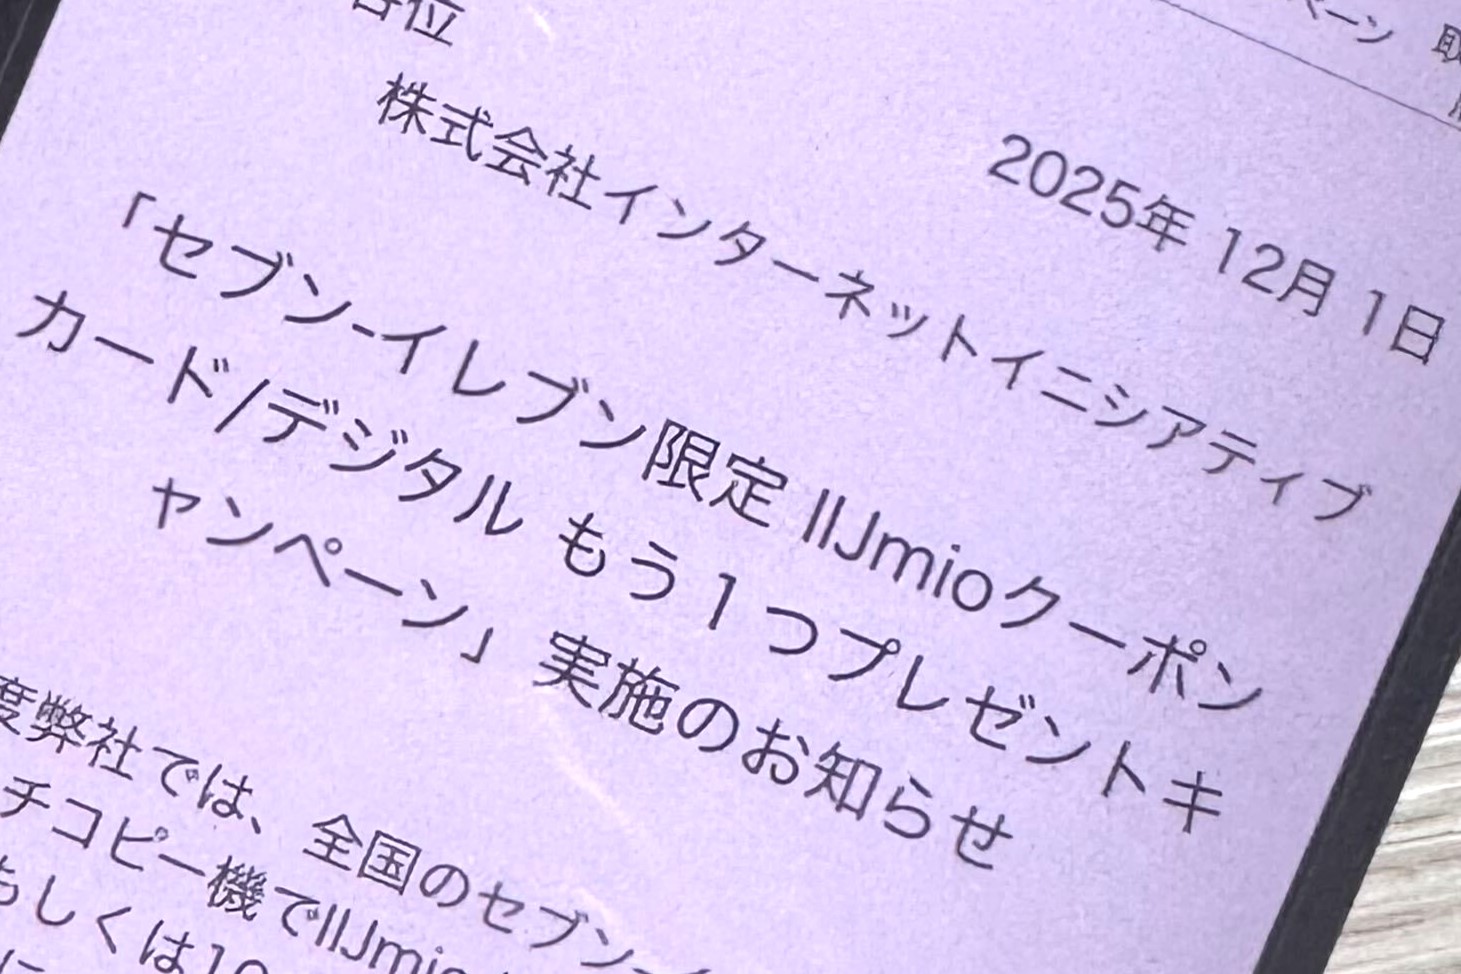 ペーン 取
各位
2025年 12月 1日
株式会社インターネットイニシアティブ
「セブン-イレブン限定 IIJmioクーポン
カード/デジタル もう１つプレゼントキ
ャンペーン」実施のお知らせ
度弊社では、全国のセブン-イ
チコピー機でIIJmio
もしくは10
に